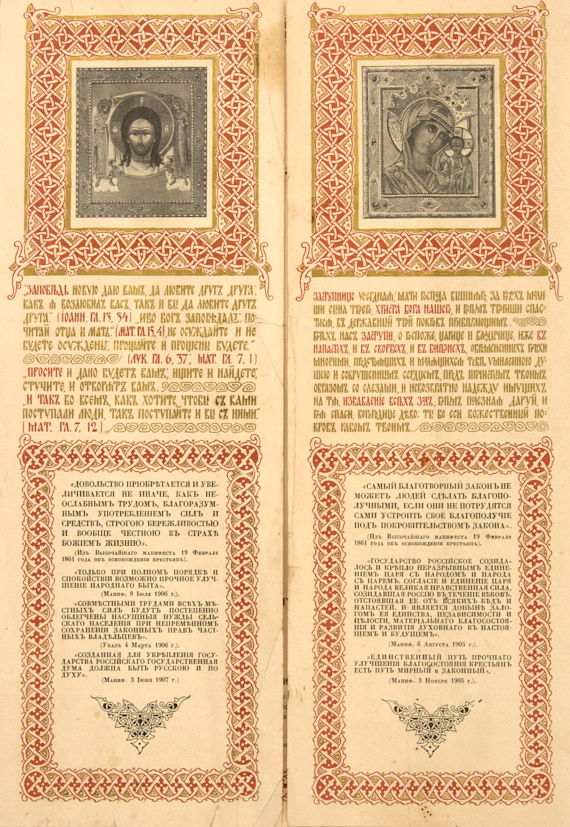 ЗАПОВѢДЬ НОВУЮ ДАЮ ВАМЪ, ДА ЛЮБИТЕ ДРУГЪ ДРУГА.
КАКЪ Я ВОЗЛЮБИЛЪ ВАСЪ, ТАКЪ И ВЫ ДА ЛЮБИТЕ ДРУГЪ
ДРУГА. (ІОАНН. ГЛ. 13, 34) ..ИБО БОГЪ ЗАПОВѢДАЛЪ: ПО-
ЧИТАЙ ОТЦА И МАТЬ. (МАТ. ГЛ. 15, 4). НЕ ОСУЖДАЙТЕ И НЕ
БУДЕТЕ ОСУЖДЕНЫ; ПРОЩАЙТЕ И ПРОЩЕНЫ БУДЕТЕ.
(ЛУК. ГЛ. 6, 37. МАТ. ГЛ. 7, 1)
ПРОСИТЕ И ДАНО БУДЕТЪ ВАМЪ; ИЩИТЕ И НАЙДЕТЕ;
СТУЧИТЕ, И ОТВОРЯТЪ ВАМЪ.
..И ТАКЪ ВО ВСЕМЪ, КАКЪ ХОТИТЕ, ЧТОБЫ СЪ ВАМИ
ПОСТУПАЛИ ЛЮДИ, ТАКЪ ПОСТУПАЙТЕ И ВЫ СЪ НИМИ.
(МАТ. ГЛ. 7, 12)
«ДОВОЛЬСТВО ПРІОБРѢТАЕТСЯ И УВЕ-
ЛИЧИВАЕТСЯ НЕ ИНАЧЕ, КАКЪ НЕ-
ОСЛАБНЫМЪ ТРУДОМЪ, БЛАГОРАЗУМ-
НЫМЪ УПОТРЕБЛЕНІЕМЪ СИЛЪ И
СРЕДСТВЪ, СТРОГОЮ БЕРЕЖЛИВОСТЬЮ
И ВООБЩЕ ЧЕСТНОЮ ВЪ СТРАХѢ
БОЖІЕМЪ ЖИЗНІЮ».
(Изъ Высочайшаго манифеста 19 Февраля
1861 года объ освобожденіи крестьянъ).
«ТОЛЬКО ПРИ ПОЛНОМЪ ПОРЯДКѢ И
СПОКОЙСТВІИ ВОЗМОЖНО ПРОЧНОЕ УЛУЧ-
ШЕНІЕ НАРОДНАГО БЫТА».
(Маниф. 9 Іюля 1906 г.)
«СОВМѢСТНЫМИ ТРУДАМИ ВСѢХЪ МѢ-
СТНЫХЪ СИЛЪ БУДУТЪ ПОСТЕПЕННО
ОБЛЕГЧЕНЫ НАСУЩНЫЯ НУЖДЫ СЕЛЬ-
СКАГО НАСЕЛЕНІЯ ПРИ НЕПРЕМѢННОМЪ
СОХРАНЕНІИ ЗАКОННЫХЪ ПРАВЪ ЧАСТ-
НЫХЪ ВЛАДѢЛЬЦЕВЪ».
(Указъ 4 Марта 1906 г.)
«СОЗДАННАЯ ДЛЯ УКРѢПЛЕНІЯ ГОСУ-
ДАРСТВА РОССІЙСКАГО ГОСУДАРСТВЕННАЯ
ДУМА ДОЛЖНА БЫТЬ РУССКОЮ И ПО
ДУХУ».
(Маниф. 3 Іюня 1907 г.)
ЗАСТУПНИЦЕ УСЕРДНАЯ, МАТИ ГОСПОДА ВЫШНЯГО, ЗА ВСѢХЪ МОЛИ-
ШИ СЫНА ТВОЕГО, ХРИСТА БОГА НАШЕГО, И ВСѢМЪ ТВОРИШИ СПАС-
ТИСЯ, ВЪ ДЕРЖАВНЫЙ ТВОЙ ПОКРОВЪ ПРИБѢГАЮЩИМЪ.
ВСѢХЪ НАСЪ ЗАСТУПИ, О ГОСПОЖЕ, ЦАРИЦЕ И ВЛАДЫЧИЦЕ, ИЖЕ ВЪ
НАПАСТЕХЪ, И ВЪ СКОРБЕХЪ, И ВЪ БОЛѢЗНЕХЪ, ОБРЕМЕНЕННЫХЪ ГРѢХИ
МНОГИМИ, ПРЕДСТОЯЩИХЪ И МОЛЯЩИХСЯ ТЕБѢ, УМИЛЕННОЮ ДУ-
ШЕЮ И СОКРУШЕННЫМЪ СЕРДЦЕМЪ, ПРЕДЪ ПРЕЧИСТЫМЪ ТВОИМЪ
ОБРАЗОМЪ СО СЛЕЗАМИ, И НЕВОЗВРАТНО НАДЕЖДУ ИМУЩИХЪ
НА ТЯ, ИЗБАВЛЕНІЕ ВСѢХЪ ЗОЛЪ, ВСѢМЪ ПОЛЕЗНАЯ ДАРУЙ, И
ВСЯ СПАСИ, БОГОРОДИЦЕ ДѢВО: ТЫ БО ЕСИ БОЖЕСТВЕННЫЙ ПО-
КРОВЪ РАБОМЪ ТВОИМЪ
«САМЫЙ БЛАГОТВОРНЫЙ ЗАКОНЪ НЕ
МОЖЕТЪ ЛЮДЕЙ СДѢЛАТЬ БЛАГОПО-
ЛУЧНЫМИ, ЕСЛИ ОНИ НЕ ПОТРУДЯТСЯ
САМИ УСТРОИТЬ СВОЕ БЛАГОПОЛУЧІЕ
ПОДЪ ПОКРОВИТЕЛЬСТВОМЪ ЗАКОНА».
(Изъ Высочайшаго манифеста 19 Февраля
1861 года объ освобожденіи крестьянъ).
«ГОСУДАРСТВО РОССІЙСКОЕ СОЗИДА-
ЛОСЬ И КРѢПЛО НЕРАЗРЫВНЫМЪ ЕДИНЕ-
НІЕМЪ ЦАРЯ СЪ НАРОДОМЪ И НАРОДА
СЪ ЦАРЕМЪ. СОГЛАСІЕ И ЕДИНЕНІЕ ЦАРЯ
И НАРОДА ВЕЛИКАЯ НРАВСТВЕННАЯ СИЛА,
СОЗИДАВШАЯ РОССІЮ ВЪ ТЕЧЕНІЕ ВѢКОВЪ,
ОТСТОЯВШАЯ ЕЕ ОТЪ ВСЯКИХЪ БѢДЪ И
НАПАСТЕЙ, И ЯВЛЯЕТСЯ ДОНЫНѢ ЗАЛО-
ГОМЪ ЕЯ ЕДИНСТВА, НЕЗАВИСИМОСТИ И
ЦѢЛОСТИ, МАТЕРІАЛЬНАГО БЛАГОСОСТОЯ-
НІЯ И РАЗВИТІЯ ДУХОВНАГО ВЪ НАСТОЯ-
ЩЕМЪ И БУДУЩЕМЪ».
(Маниф. 6 Августа 1905 г.)
«ЕДИНСТВЕННЫЙ ПУТЬ ПРОЧНАГО
УЛУЧШЕНІЯ БЛАГОСОСТОЯНІЯ КРЕСТЬЯНЪ
ЕСТЬ ПУТЬ МИРНЫЙ и ЗАКОННЫЙ».
(Маниф. 3 Ноября 1905 г.)